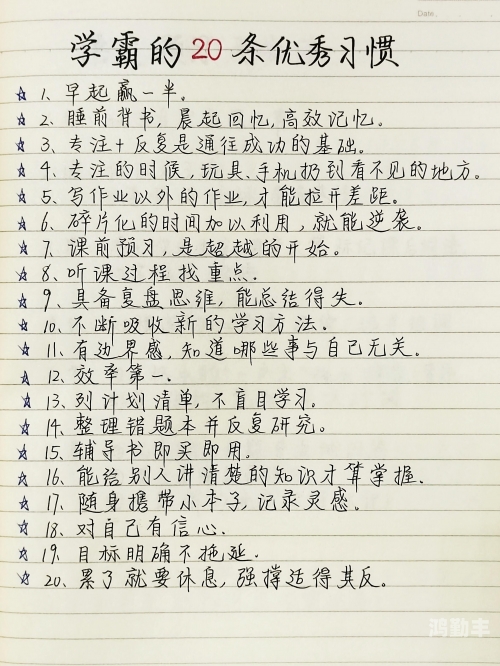 Date.
学霸的20条优秀习惯
☆ 1、早起赢一半。
☆ 2、睡前背书,晨起回忆,高效记忆。
☆ 3、专注+反复是通往成功的基础。
☆ 4、专注的时候,玩具、手机扔到看不见的地方。
☆ 5、写作业以外的作业,才能拉开差距。
☆ 6、碎片化的时间加以利用,就能逆袭。
☆ 7、课前预习,是超越的开始。
☆ 8、听课过程找重点.
☆ 9、具备复盘思维,能总结得失。
☆ 10、不断吸收新的学习方法.
☆ 11、有边界感,知道哪些事与自己无关。
☆ 12、效率第一.
☆ 13、列计划清单,不盲目学习。
☆ 14、整理错题本并反复研究。
☆ 15、辅导书即买即用。
☆ 16、能给别人讲清楚的知识才算掌握.
☆ 17、随身携带小本子,记录灵感。
☆ 18、对自己有信心.
☆ 19、目标明确不拖延.
☆ 20、累了就要休息,强撑适得其反。
鸿勤丰